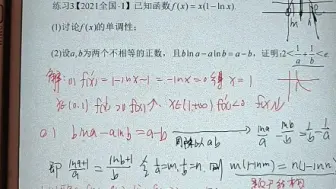 练习3【2021全国·1】已知函数f(x)=x(1-lnx).
(1)讨论f(x)的单调性;
(2)设a,b为两个不相等的正数,且blna-alnb=a-b,证明:2<1/a+1/b<e
解:(1) f'(x)=1-lnx-1=-lnx=0 x=1
x∈(0,1) f'(x)>0 f(x)↗ x∈(1,+∞) f'(x)<0 f(x)↘
2) blna-alnb=a-b 同除以ab lna/a - lnb/b = 1/b - 1/a
即 (lna+1)/a = (lnb+1)/b 令 1/a=m, 1/b=n. 则 m(1-lnm)=n(1-lnn)